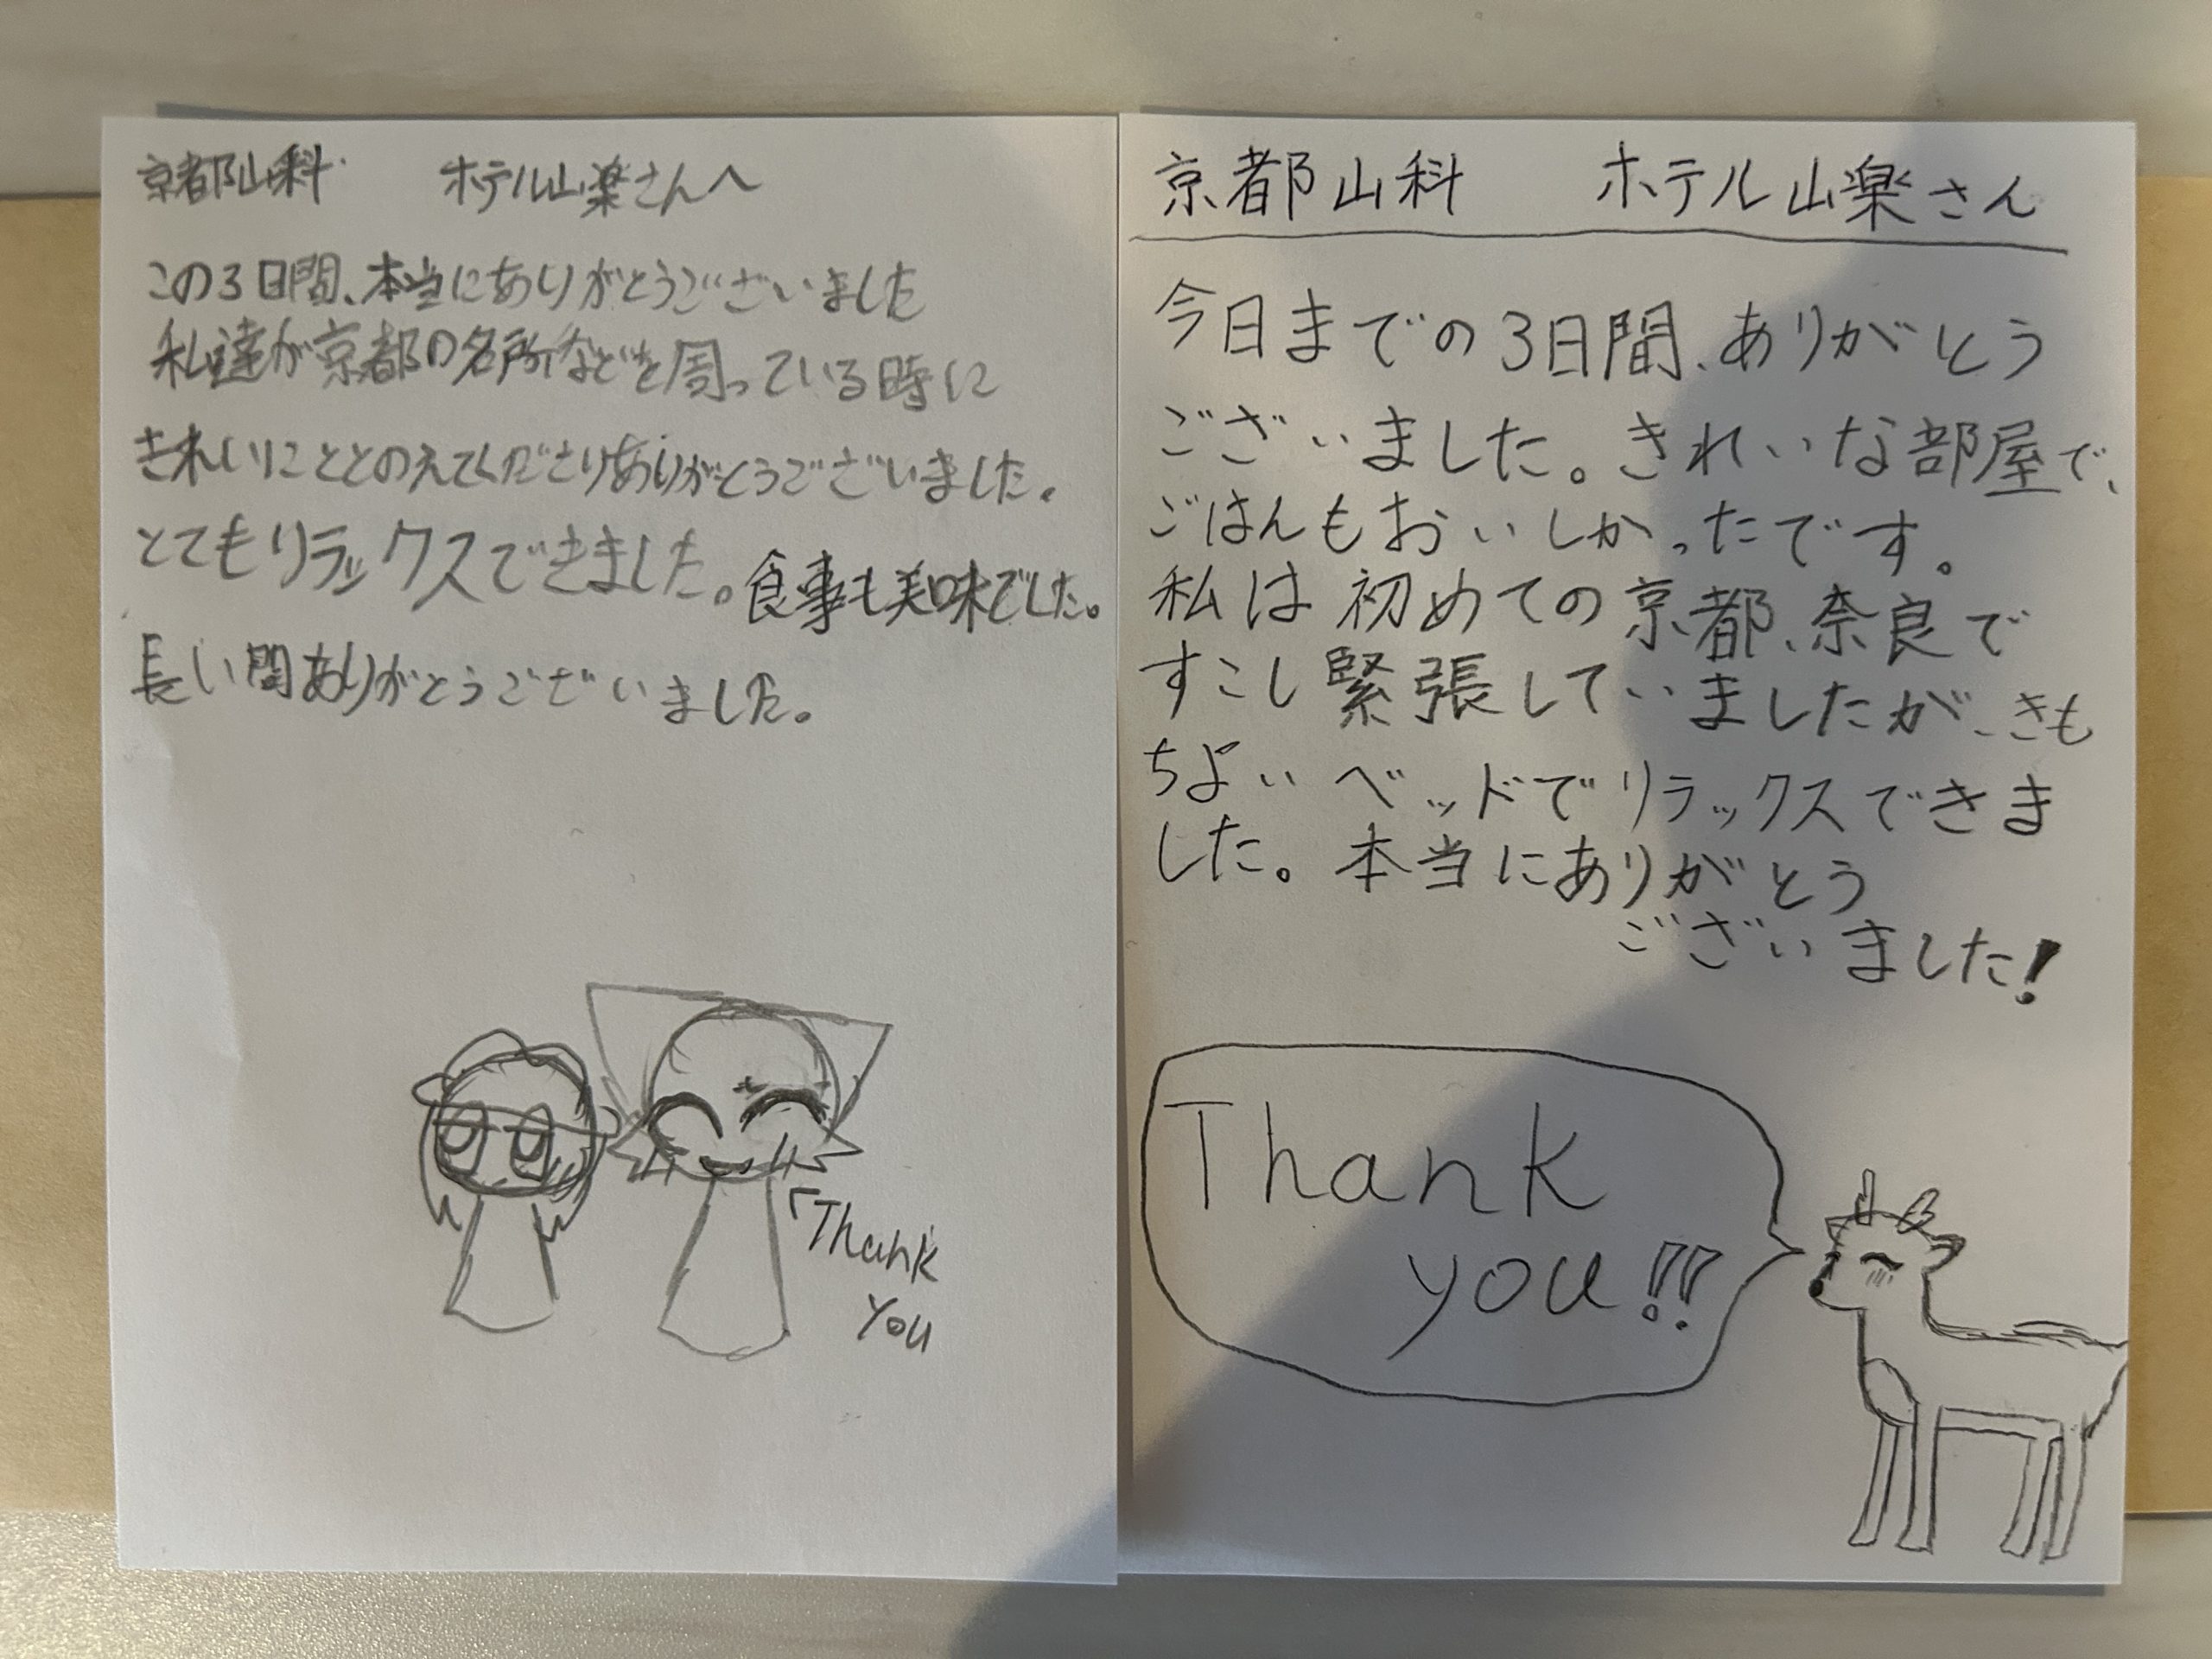 京都山科 ホテル山楽さんへ
この3日間、本当にありがとうございました
私達が京都の名所などを周っている時に
きれいにととのえてくださりありがとうございました。
とてもリラックスできました。食事も美味でした。
長い間ありがとうございました。
「Thank
you
京都山科 ホテル山楽さん
今日までの3日間、ありがとう
ございました。きれいな部屋で、
ごはんもおいしかったです。
私は初めての京都、奈良で
すこし緊張していましたが、きも
ちよいベッドでリラックスできま
した。本当にありがとう
ございました!
Thank
you!!